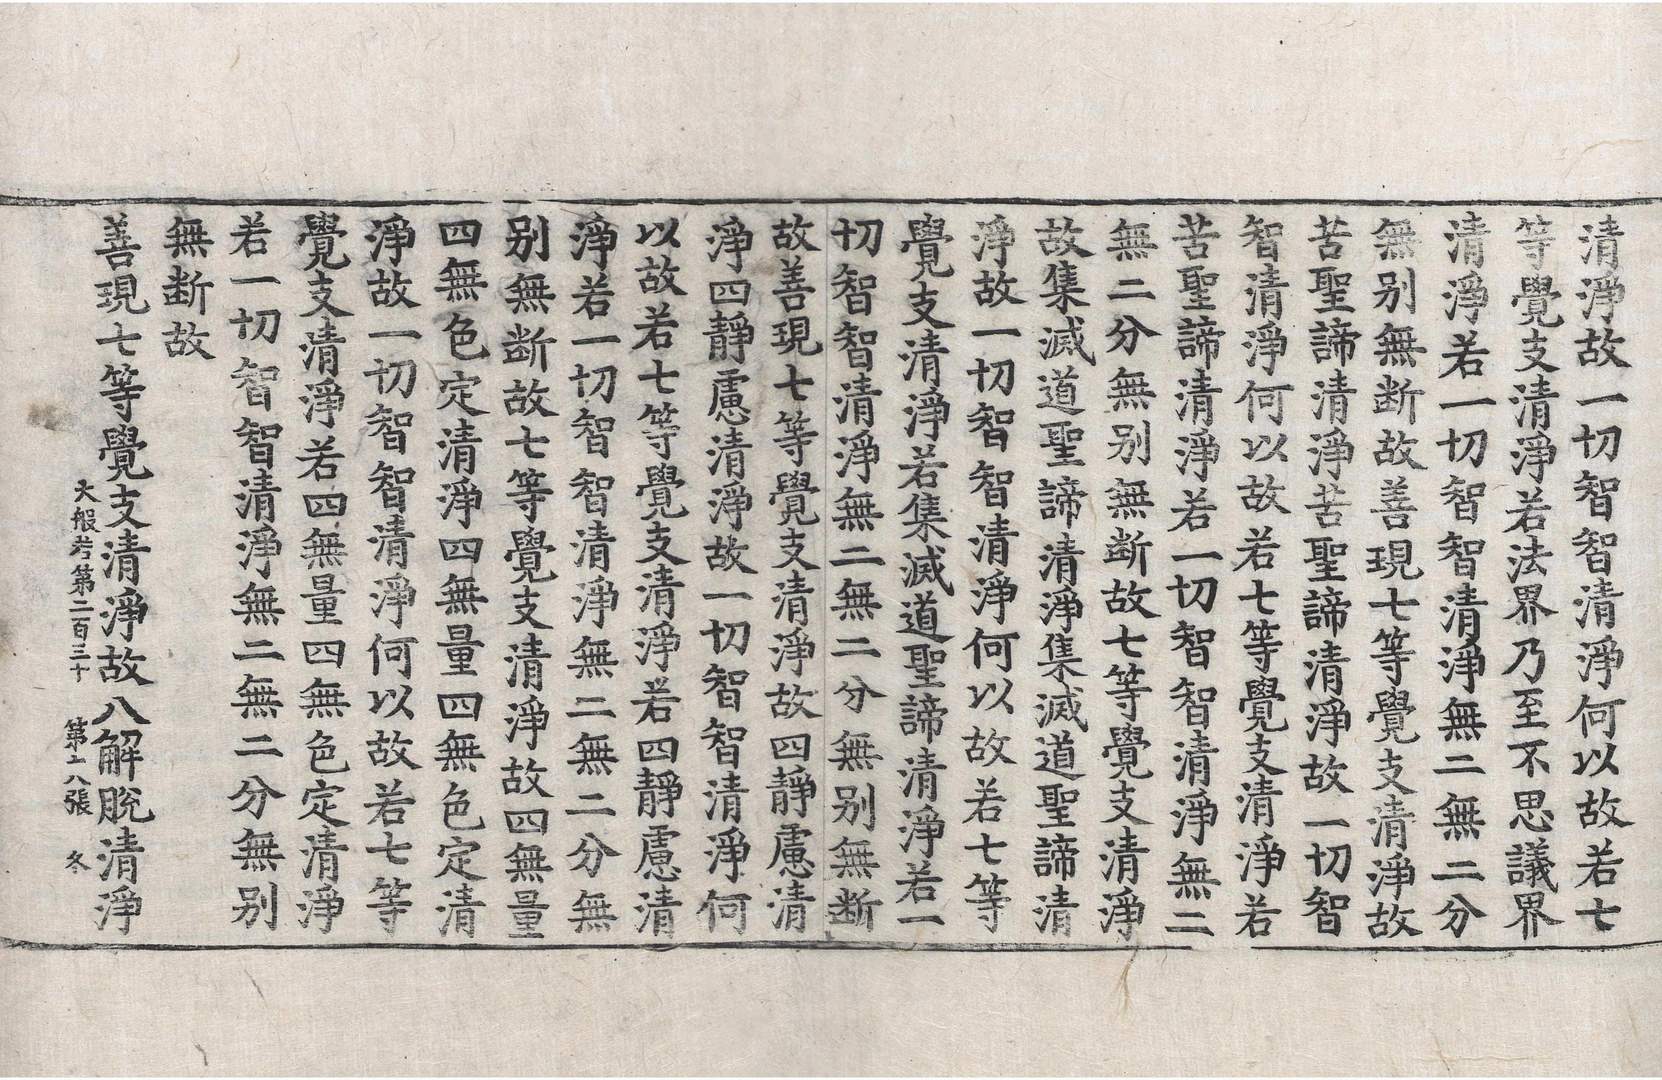 清淨故一切智智清淨何以故若七
等覺支清淨若法界乃至不思議界
清淨若一切智智清淨無二無二分
無別無斷故善現七等覺支清淨故
苦聖諦清淨苦聖諦清淨故一切智
智清淨何以故若七等覺支清淨若
苦聖諦清淨若一切智智清淨無二
無二分無別無斷故七等覺支清淨
故集滅道聖諦清淨集滅道聖諦清
淨故一切智智清淨何以故若七等
覺支清淨若集滅道聖諦清淨若一
切智智清淨無二無二分無別無斷
故善現七等覺支清淨故四靜慮清
淨四靜慮清淨故一切智智清淨何
以故若七等覺支清淨若四靜慮清
淨若一切智智清淨無二無二分無
別無斷故七等覺支清淨故四無量
四無色定清淨四無量四無色定清
淨故一切智智清淨何以故若七等
覺支清淨若四無量四無色定清淨
若一切智智清淨無二無二分無別
無斷故
善現七等覺支清淨故八解脫清淨
大般若第二百三十 第十八張 冬